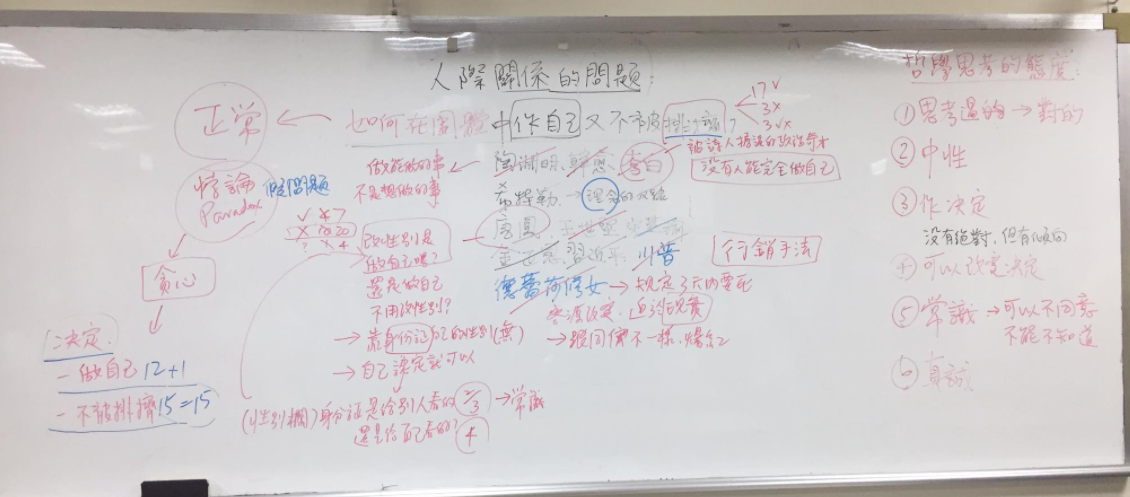 人際關係的問題:
正常 ← 如何在團體中作自己又不被排擠?
17 ✓
3 ×
3 ✓×
被詩人
沒有人能完全做自己
做能做的事
不是想做的事
陶淵明、 李白
悖論
Paradox
假問題
希特勒 → 理念的
習近平 川普
行銷手法
改性別是
做自己嗎?
還是做自己
不用改性別?
德蕾莎修女 → 規定3天內要死
資源改變
貪心
→ 靠身份証 的性別(無)
→ 跟同儕不一樣,爆紅
→ 自己決定就可以
決定.
- 做自己 12+1
- 不被排擠 15=15
(性別欄)身份証是給別人看的 2/3 → 常識
還是給自己看的? 4
哲學思考的態度:
① 思考過的 → 對的
② 中性
③ 作決定
沒有絕對,但有傾向
④ 可以改變決定
⑤ 常識 → 可以不同意
不能不知道
⑥ 真誠